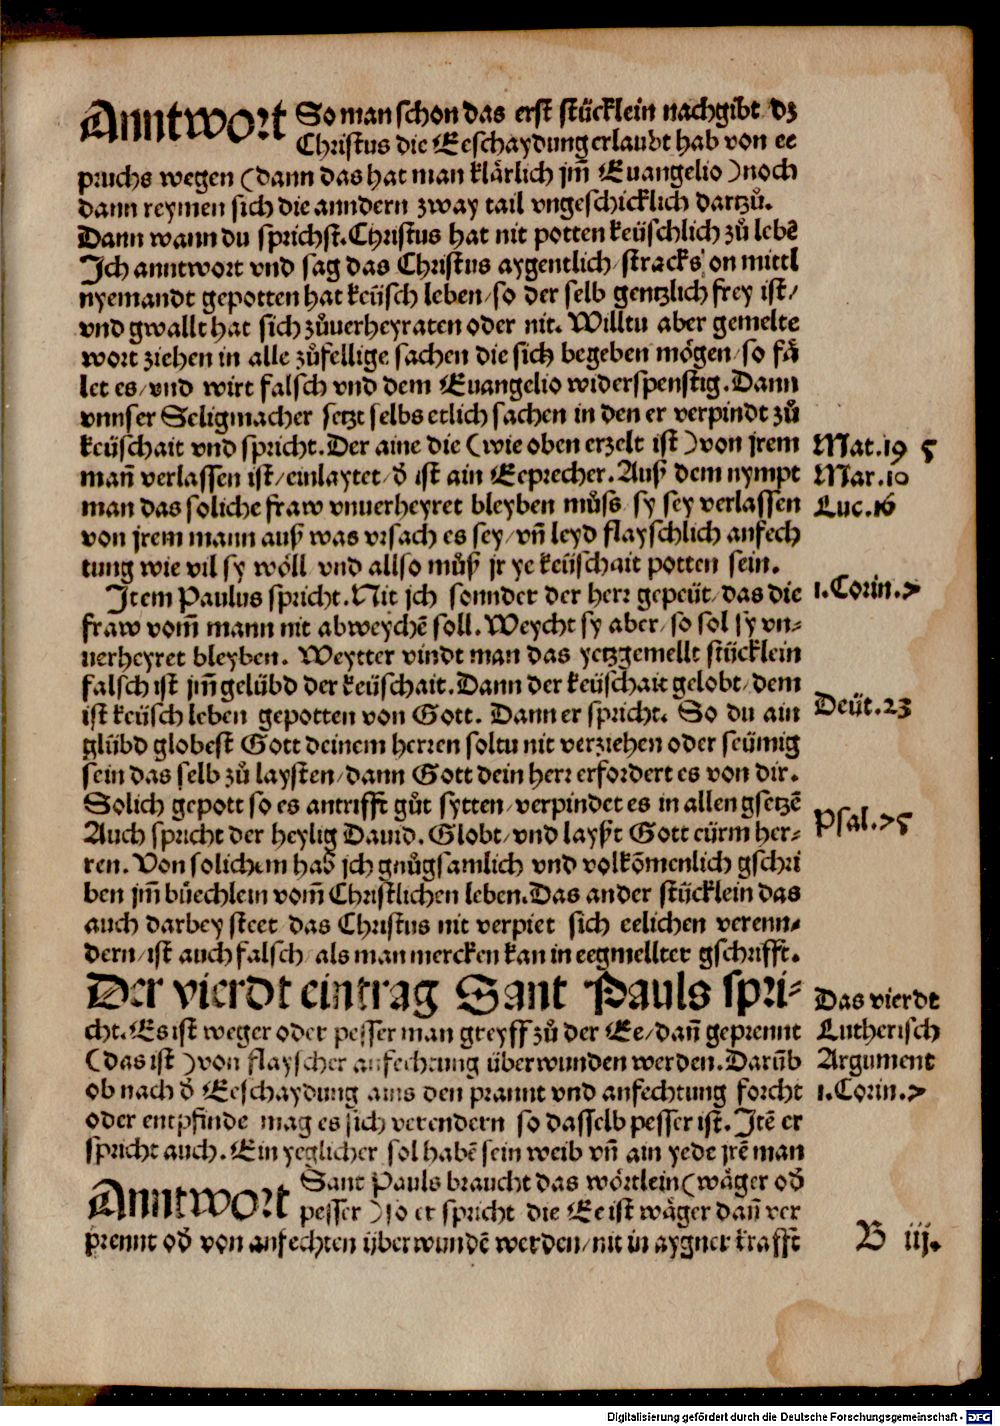 Anntwort So man schon das erst stücklein nachgibt dz
Christus die Eeschaydung erlaubt hab von ee
pruchs wegen (dann das hat man klärlich jm̃ Euangelio) noch
dann reymen sich die anndern zway tail vngeschicklich dartzů.
Dann wann du sprichst. Christus hat nit potten keüschlich zů lebẽ
Ich anntwort vnd sag das Christus aygentlich/ stracks on mittl
nyemandt gepotten hat keüsch leben/ so der selb gentzlich frey ist/
vnd gwallt hat sich zůuerheyraten oder nit. Willtu aber gemelte
wort ziehen in alle zůfellige sachen die sich begeben mögen/ so fä
let es/ vnd wirt falsch vnd dem Euangelio widerspenstig. Dann
vnnser Seligmacher setzt selbs etlich sachen in den er verpindt zů
keüschait vnd spricht. Der aine die (wie oben erzelt ist) von jrem
man̄ verlassen ist/ einlaytet/ d̄ ist ain Eeprecher. Auß dem nympt
man das soliche fraw vnuerheyret bleyben můß/ sy sey verlassen
von jrem mann auß was vrsach es sey/ vn̄ leyd flayschlich anfech
tung wie vil sy wöll/ vnd allso můß jr ye keüschait potten sein.
Mat.19 5
Mar.10
Luc.16
Item Paulus spricht. Nit jch sonnder der herr gepeüt/ das die
fraw vom̃ mann nit abweychẽ soll. Weycht sy aber/ so sol sy vn⸗
uerheyret bleyben. Weytter vindt man das yetzgemellt stücklein
falsch ist jm̃ gelübd der keüschait. Dann der keüschait gelobt/ dem
ist keüsch leben gepotten von Gott. Dann er spricht. So du ain
glübd globest Gott deinem herren soltu nit verziehen oder seümig
sein das selb zů laysten/ dann Gott dein herr erfordert es von dir.
Solich gepott so es antrifft gůt sytten/ verpindet es in allen gsetzẽ
Auch spricht der heylig Dauid. Globt/ vnd layßt Gott eürm her⸗
ren. Von solichem hab jch gnůgsamlich vnd volkõmenlich gschri
ben jm̃ büechlein vom̃ Christlichen leben. Das ander stücklein das
auch darbey steet das Christus nit verpiet sich eelichen verenn⸗
dern/ ist auch falsch/ als man mercken kan in eegmellter gschrifft.
1.Corin.7
Deüt.23
Psal.75
Der vierdt eintrag Sant Pauls spri⸗
cht. Es ist weger oder pesser man greyff zů der Ee/ dan̄ geprennt
(das ist) von flayscher anfechtung überwunden werden. Darũb
ob nach d̄ Eeschaydung ains den prannt vnd anfechtung forcht
oder entpfinde mag es sich verendern so dasselb pesser ist. Itẽ er
spricht auch. Ein yeglicher sol habẽ sein weib vn̄ ain yede jrẽ man
Das vierdt
Lutherisch
Argument
1.Corin.7
Anntwort Sant Pauls braucht das wörtlein (wäger od̄
pesser) so er spricht die Ee ist wäger dan̄ ver
prennt od̄ von anfechten überwundẽ werden/ nit in aygner krafft
B iij.
Digitalisierung gefördert durch die Deutsche Forschungsgemeinschaft - DFG